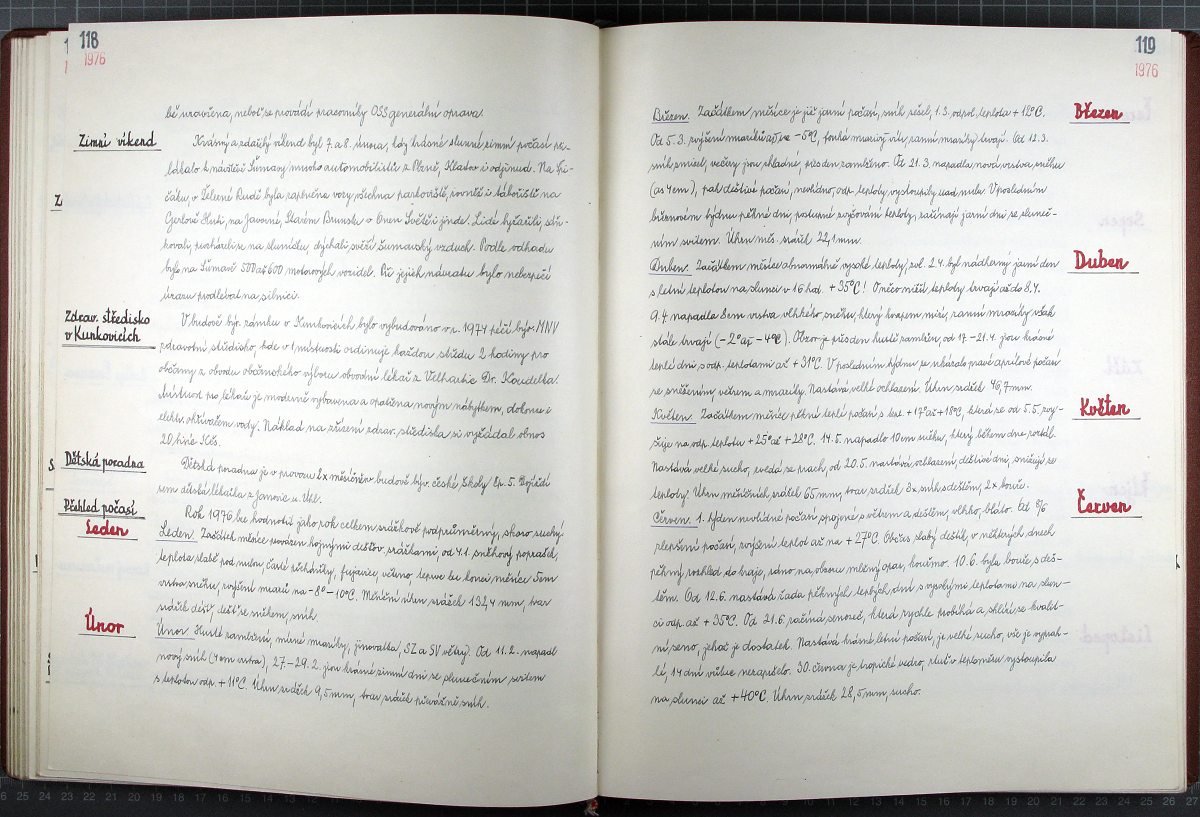 118
1976
bě uzavřena, neboť se provádí pracovníky OSS generální oprava.
Zimní víkend
Krásný a zdařilý víkend byl 7. a 8. února, kdy krásné slunné zimní počasí při-
lákalo k návštěvě Šumavy mnoho automobilistů z Plzně, Klatov i odjinud. Na Špi-
čáku, v Železné Rudě byla zaplněna vozy všechna parkoviště, rovněž i tábořiště na
Gerlově Huti, na Javorné, Starém Brunstu a Onen Světě i jinde. Lidé lyžařili, sáň-
kovali, procházeli se na sluníčku, dýchali svěží šumavský vzduch. Podle odhadu
bylo na Šumavě 500 až 600 motorových vozidel. Při jejich návratu bylo nebezpečí
úrazu prodlévat na silnici.
Zdrav. středisko
v Kunkovicích
V budově býv. zámku v Kunkovicích bylo vybudováno v r. 1974 péčí býv. MNV
zdravotní středisko, kde v 1 místnosti ordinuje každou středu 2 hodiny pro
občany z obvodu občanského výboru obvodní lékař z Velhartic Dr. Koudelka.
Místnost pro lékaře je moderně vybavena a opatřena novým nábytkem, dokonce i
elektr. ohřívačem vody. Náklad na zřízení zdrav. střediska si vyžádal obnos
20 tisíc Kčs.
Dětská poradna
Dětská poradna je v provozu 1x měsíčně v budově býv. české školy čp. 5. Dojíždí
sem dětská lékařka z Janovic n. Úhl.
Přehled počasí
Rok 1976 lze hodnotit jako rok celkem srážkově podprůměrný, skoro suchý.
Leden
Leden. Začátek měsíce provázen hojnými dešťov. srážkami, od 4.1. sněhový poprašek,
teplota slabě pod nulou, časté přeháňky, fujavice, včetně teprve ku konci měsíce 5 cm
vrstva sněhu, zvýšení mrazů na -8° - 10°C. Měsíční úhrn srážek 132,4 mm, tvar
srážek déšť, déšť se sněhem, sníh.
Únor
Únor. Husté zamlžení, mírné mrazíky, jinovatka, SZ a SV větry. Od 11.2. napadl
nový sníh (4 cm vrstva), 27.-29.2. jsou krásné zimní dni se slunečním svitem
s teplotou odp. +11°C. Úhrn srážek 9,5 mm, tvar srážek převážně sníh.
119
1976
Březen
Březen. Začátkem měsíce je již jarní počasí, sníh sešel, 1.3. odpol. teplota +12°C.
Od 5.3. zvýšení mrazíků až na -5°C, fouká mrazivý vítr, ranní mrazíky trvají. Od 12.3.
sníh zmizel, večery jsou chladné, přes den zamlženo. Od 21.3. napadla nová vrstva sněhu
(as 4 cm), pak deštivé počasí, nevlídno, odp. teploty vystoupily nad nulu. V posledním
březnovém týdnu pěkné dni, postupné zvyšování teploty, začínají jarní dni se sluneč-
ním svitem. Úhrn měs. srážek 22,1 mm.
Duben
Duben. Začátkem měsíce abnormálně vysoké teploty, zvl. 2.4. byl nádherný jarní den
s letní teplotou na slunci v 16 hod. +35°C! O něco nižší teploty trvají až do 8.4.
9.4. napadla 8 cm vrstva vlhkého sněhu, který kvapem mizí, ranní mrazíky však
stále trvají (-2° až -4°C). Obzor je přes den hustě zamlžen, od 17.-21.4. jsou krásné
teplé dni s odp. teplotami až +31°C. V posledním týdnu se ukázalo pravé aprílové počasí
se sněžením, větrem a mrazíky. Nastává velké ochlazení. Úhrn srážek 46,7 mm.
Květen
Květen. Začátkem měsíce pěkné teplé počasí s tep. +17° až +18°C, která se od 5.5. zvy-
šuje na odp. teplotu +25° až +28°C. 14.5. napadlo 10 cm sněhu, který během dne roztál.
Nastává velké sucho, zvedá se prach, od 20.5. nastává ochlazení, deštivé dni, snižují se
teploty. Úhrn měsíčních srážek 65 mm, tvar srážek 3x sníh s deštěm, 2x bouře.
Červen
Červen. 1. týden nevlídné počasí spojené s větrem a deštěm, vlhko, bláto. Od 8/6
zlepšení počasí, zvýšení teplot až na +27°C. Občas slabý deštík, v některých dnech
pěkný rozhled do kraje, ráno na obzoru mlčný opar, kouřmo. 10.6. byla bouře s deš-
těm. Od 12.6. nastává řada pěkných teplých dnů s vysokými teplotami na slun-
ci odp. až +35°C. Od 21.6. začíná senoseč, která rychle probíhá a sklízí se kvalit-
ní seno, jehož je dostatek. Nastává krásné letní počasí, je velké sucho, vše je vyprah-
lé, 14 dní vůbec nezapršelo. 30. června je tropické vedro, rtuť v teploměru vystoupila
na slunci až +40°C. Úhrn srážek 28,5 mm, sucho.